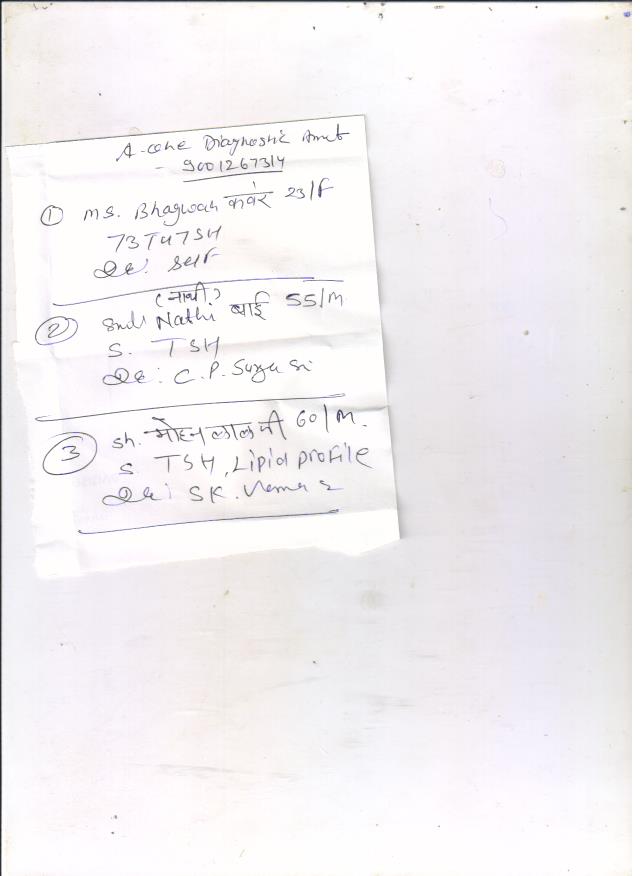 A-one Diagnostic Amet
- 9001267314
① MS. Bhagwan कवंर 23/F
T3T4TSH
Dr: Self
(नाथी)
② Smt Nathi बाई 55/M
S. TSH
Dr: C.P. Surya
③ Sh. मोहनलाल जी 60/M.
S TSH, Lipid profile
Dr: SK. Verma